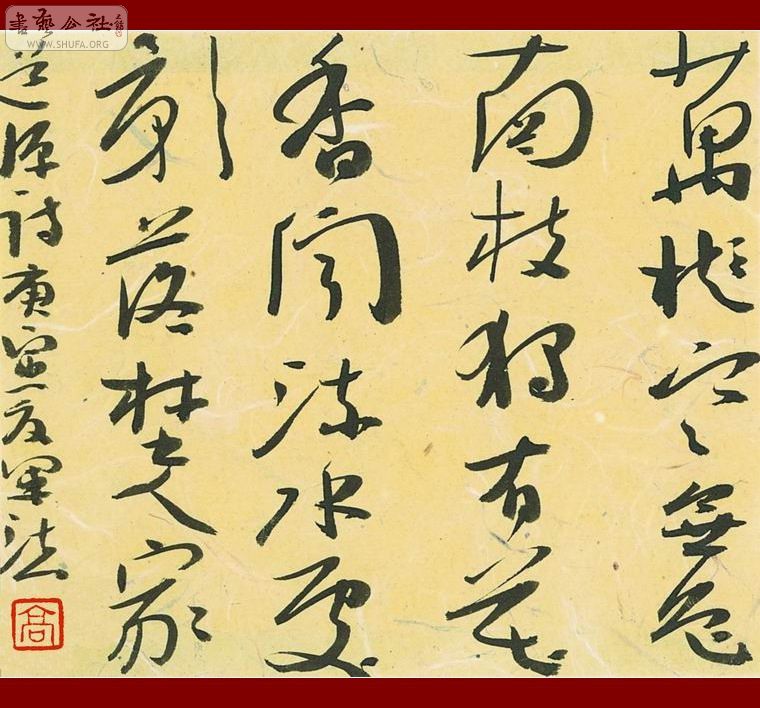 書藝公社
WWW.SHUFA.ORG
萬樹寒無色
南枝獨有花
香聞流水處
影落埜人家
道源詩庚寅夏軍法
高